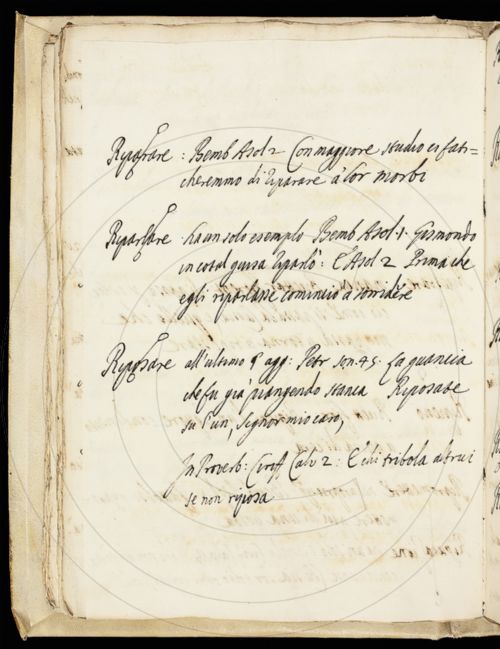 Riparare : Bemb Asol 2 Con maggiore studio ci fati=
cheremmo di riparare a' lor morbi
Riparlare ha un solo esempio Bemb Asol. 1. Gismondo
in cotal guisa riparlò : E Asol 2 Prima che
egli riparlasse cominciò a sorridere
Riposare all'ultimo § agg: Petr son. 45. La guancia
che fu già piangendo stanca Riposate
su l'un, Signor mio caro,
In Proverb: Salv 2 : E chi tribola altrui
se non riposa